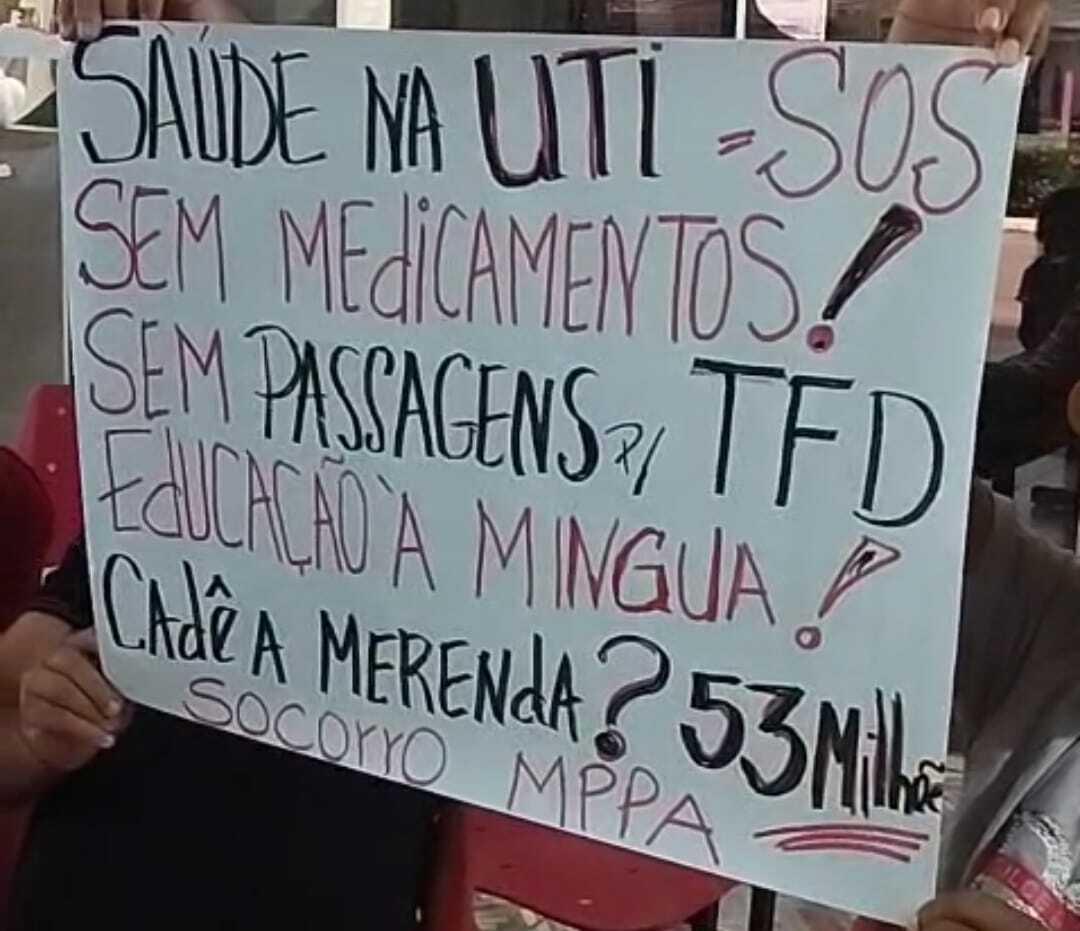 SAÚDE NA UTI = SOS
SEM MEdiCAMENTOS!
SEM PASSAGENS P/ TFD
EdUCAÇÃO À MINGUA!
CAdê A MERENdA? 53 Milhõe
SOCOrrO MPPA